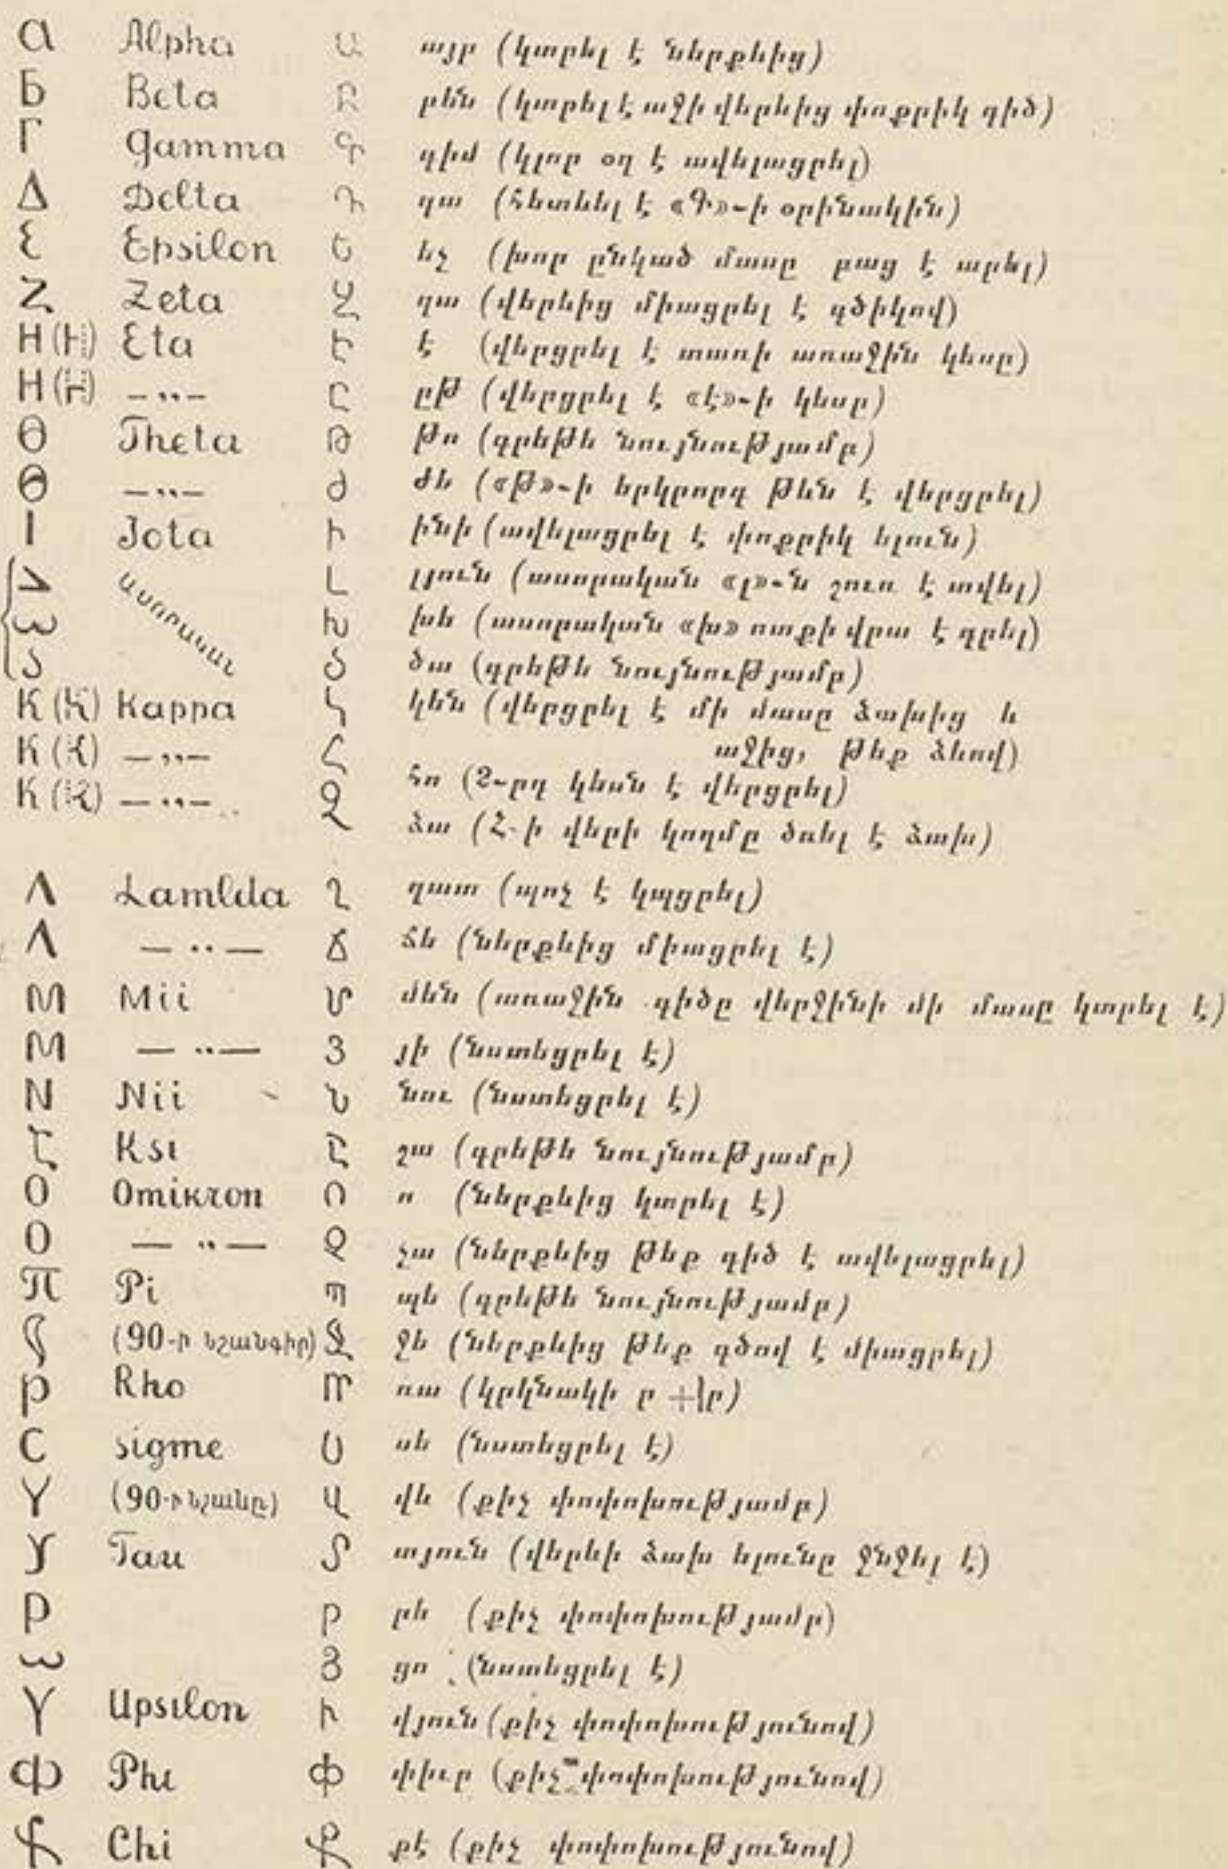 α Alpha Ա այբ (կտրել է ներքևից)
Б Beta Բ բեն (կտրել է աջի վերևից փոքրիկ գիծ)
Γ Gamma Գ գիմ (կլոր օղ է ավելացրել)
Δ Delta Դ դա (հետևել է «Գ»-ի օրինակին)
ε Epsilon Ե եչ (խոր ընկած մասը բաց է արել)
Z Zeta Զ զա (վերևից միացրել է գծիկով)
H (H) Eta Է է (վերցրել է տառի առաջին կեսը)
H (H) — „ — Ը ըթ (վերցրել է «է»-ի կեսը)
θ Theta Թ թո (գրեթե նույնությամբ)
θ — „ — Ժ ժե («Թ»-ի երկրորդ թևն է վերցրել)
Ι Jota Ի ինի (ավելացրել է փոքրիկ ելուն)
Լ լյուն (ասորական «լ»-ն շուռ է տվել)
ասորական Խ խե (ասորական «խ» ոտքի վրա է գրել)
Ծ ծա (գրեթե նույնությամբ)
K (K) Kappa Կ կեն (վերցրել է մի մասը ձախից և
աջից, թեք ձևով)
K (K) — „ — Հ հո (2-րդ կեսն է վերցրել)
K (K) — „ — Ձ ձա (Հ-ի վերի կողմը ծռել է ձախ)
Λ Lamlda Ղ ղատ (պոչ է կպցրել)
Λ — „ — Ճ ճե (ներքևից միացրել է)
M Mii Մ մեն (առաջին գիծը վերջինի մի մասը կտրել է)
M — „ — Յ յի (նստեցրել է)
N Nii Ն նու (նստեցրել է)
ζ Ksi Շ շա (գրեթե նույնությամբ)
O Omikron Ո ո (ներքևից կտրել է)
O — „ — Չ չա (ներքևից թեք գիծ է ավելացրել)
π Pi Պ պե (գրեթե նույնությամբ)
(90-ի նշանգիր) Ջ ջե (ներքևից թեք գծով է միացրել)
p Rho Ռ ռա (կրկնակի ր + ր)
C sigme Ս սե (նստեցրել է)
Υ (90-ի նշանը) Վ վե (քիչ փոփոխությամբ)
ϒ Tau Տ տյուն (վերևի ձախ ելունը ջնջել է)
p Ր րե (քիչ փոփոխությամբ)
ω Ց ցո (նստեցրել է)
Υ Upsilon Ւ վյուն (քիչ փոփոխությունով)
Փ Phi Փ փիւր (քիչ փոփոխությունով)
Chi Ք քէ (քիչ փոփոխությունով)